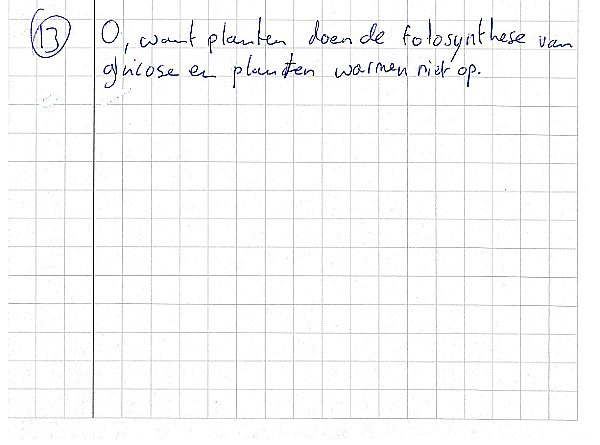 13 O, want planten doen de fotosynthese van
glucose en planten warmen niet op.